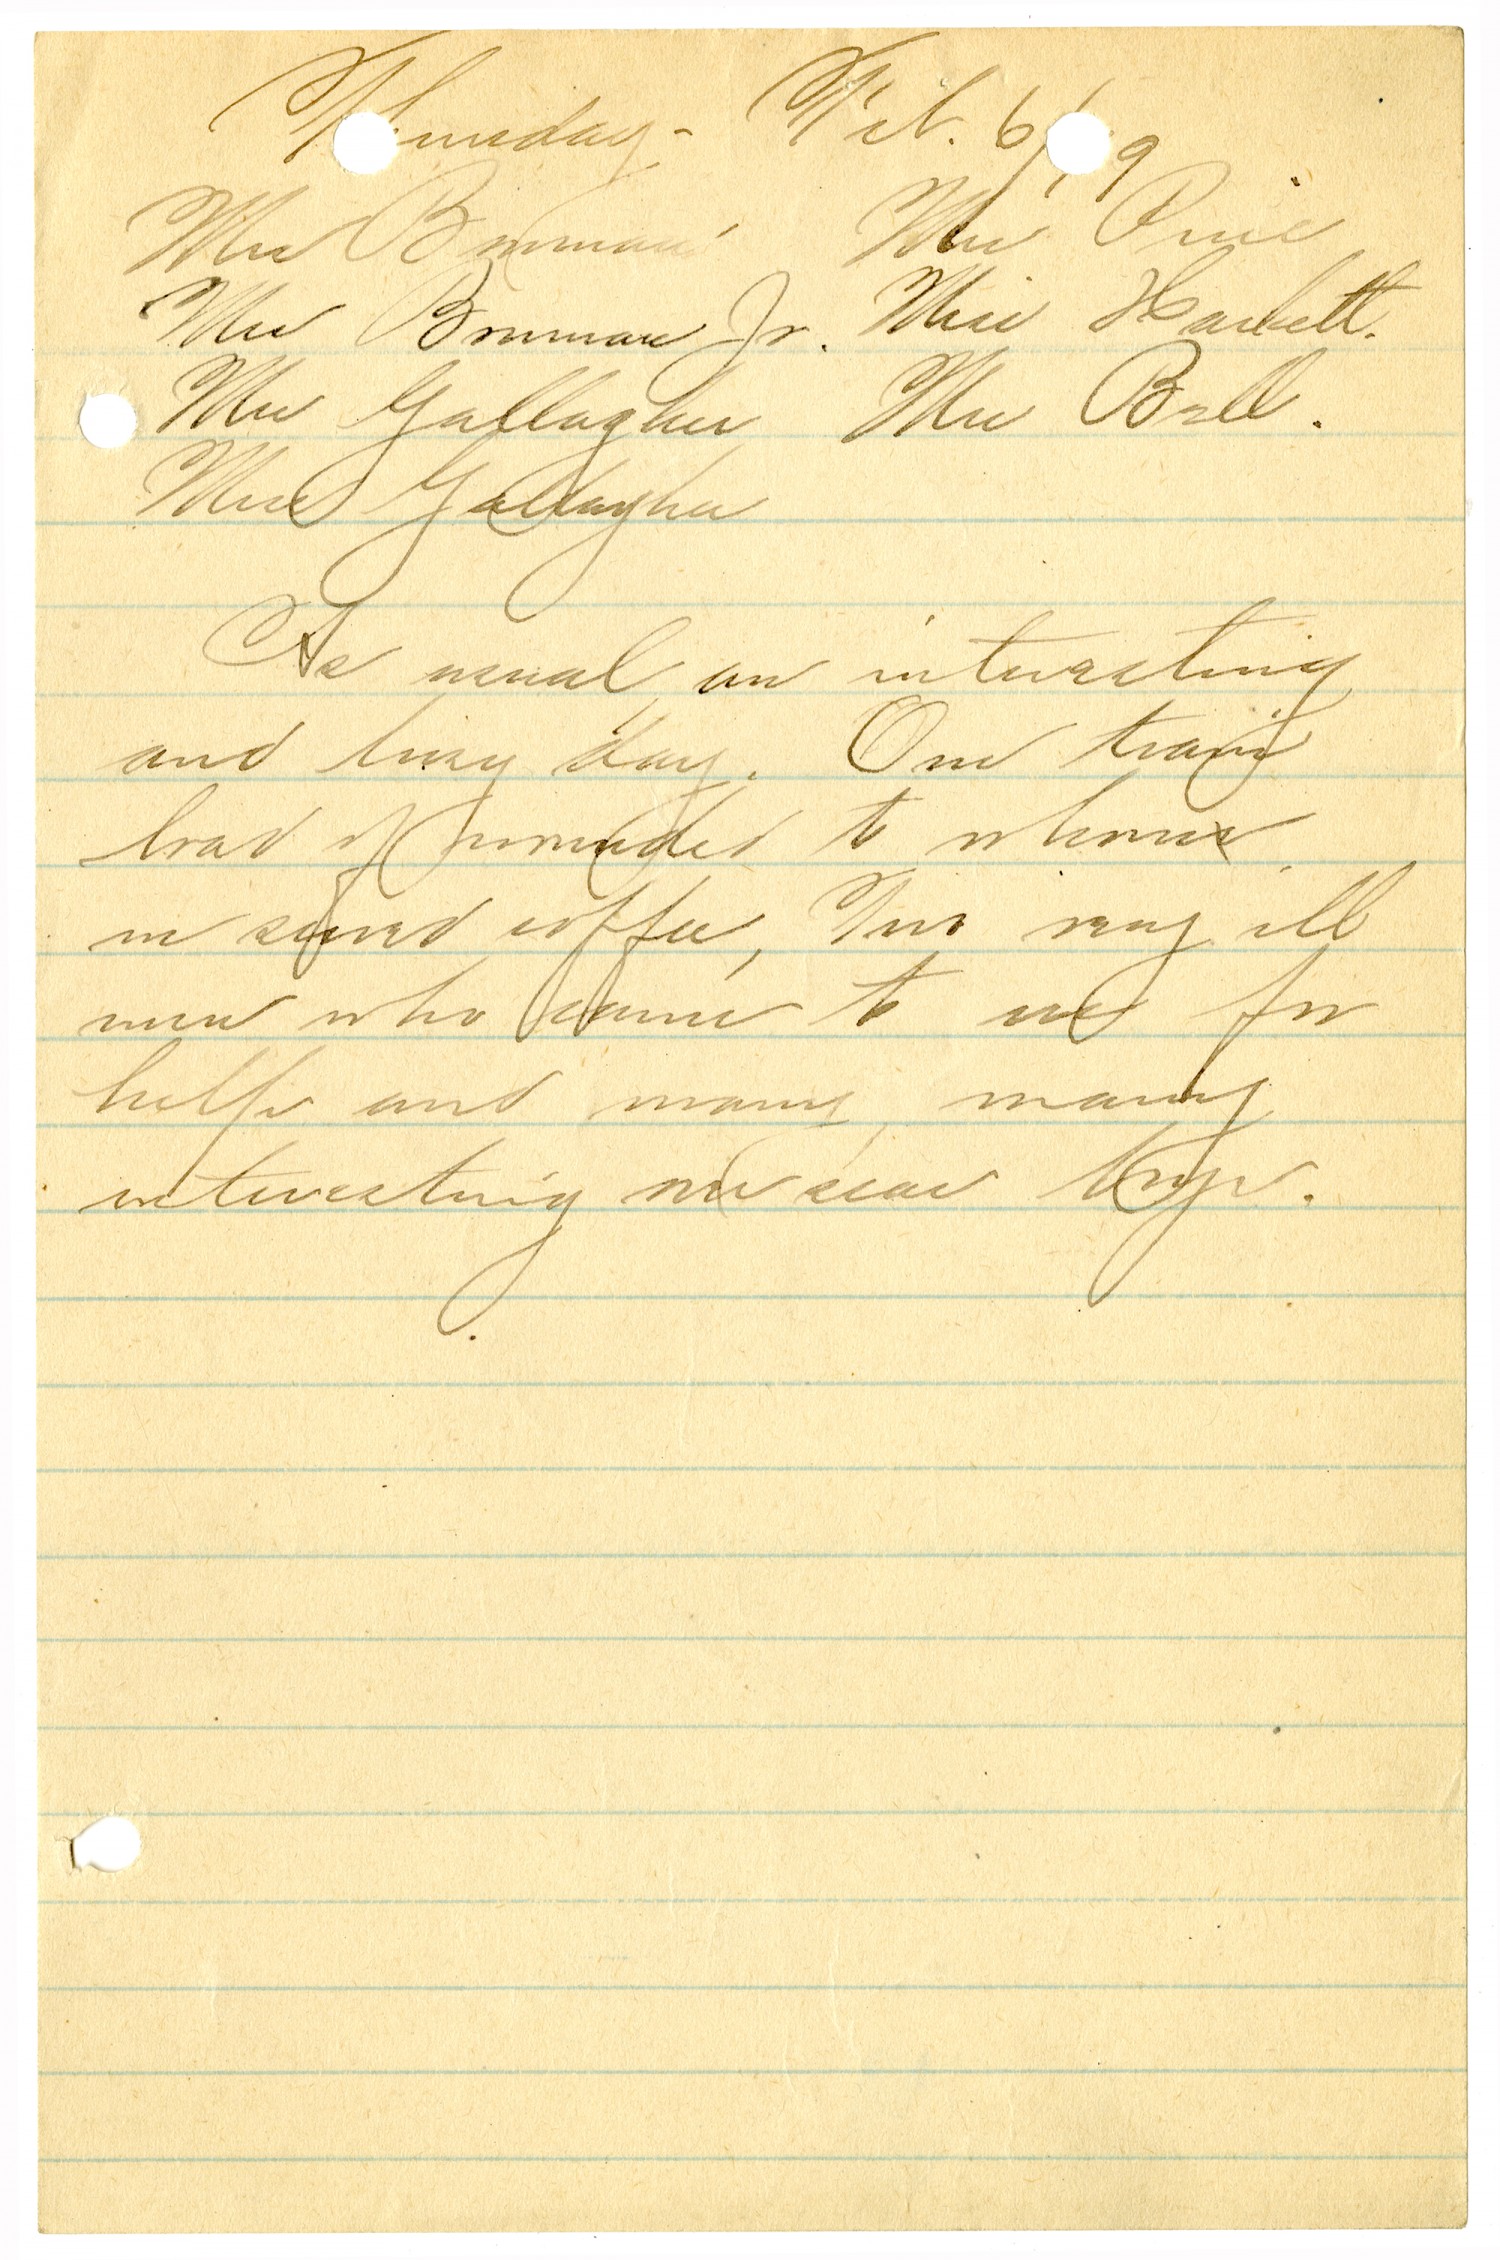 Thursday - Feb. 6, 19
Mrs Bowman Mrs Price
Mrs Bowman Jr. Miss Haslett.
Mrs Gallagher Mrs Ball.
Miss Gallagher
As usual, an interesting
and busy day. One train
load of wounded to whom
we served coffee, Two very ill
men who came to us for
help and many, many
interesting over seas boys.